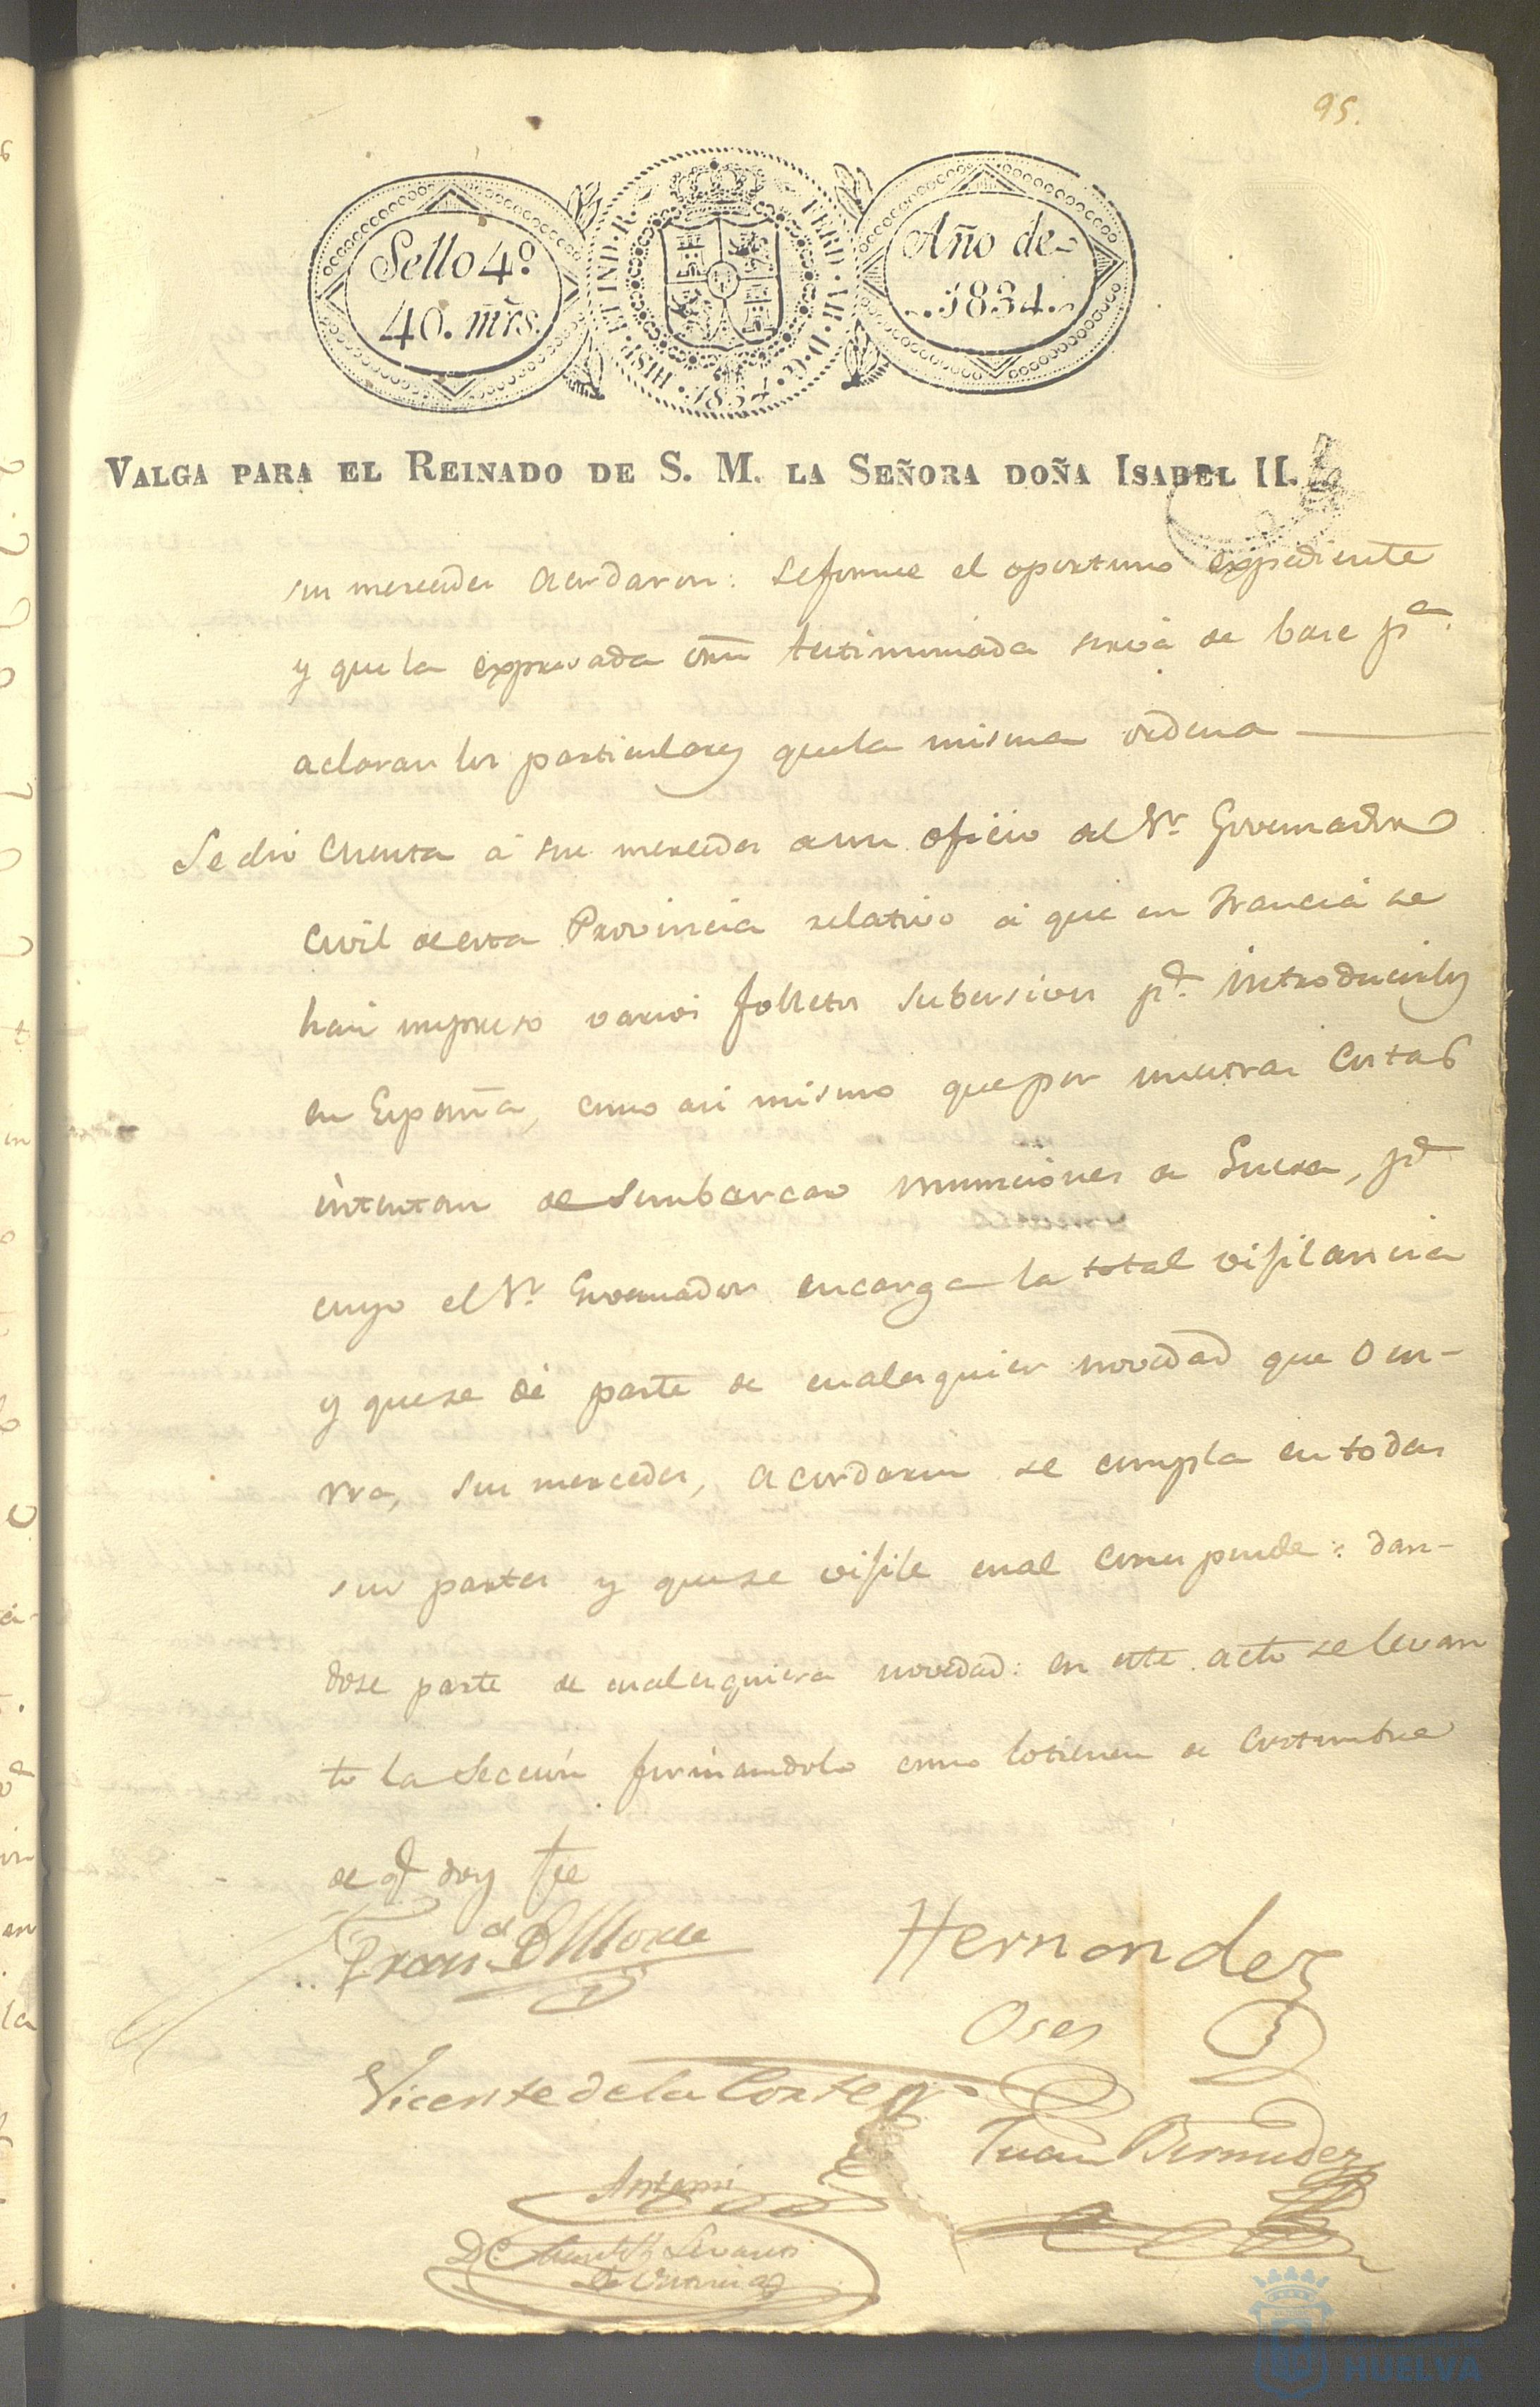 95.
Sello 4º
40. mrs.
HISP. ET IND. R.
FERD. VII. D. G.
1834
Año de
1834.
VALGA PARA EL REINADO DE S. M. LA SEÑORA DOÑA ISABEL II.
sus mercedes acordaron: se forme el oportuno expediente
y que la expresada orn testimoniada sirva de base pª
aclarar los particulares que la misma ordena
Se dio cuenta á sus mercedes de un oficio del Sr. Governador
Civil de esta Provincia relativo á que en Francia se
han impreso varios folletos subersivos pª introducirlos
en España, como asi mismo que por nuestras Costas
intentan desembarcar municiones de Guerra, pª
cuyo el Sr. Governador encarga la total vijilancia
y que se dé parte de cualesquier novedad que ocu-
rra, sus mercedes, acordaron se cumpla en todas
sus partes y que se vijile cual corresponde: dan-
dose parte de cualesquiera novedad: en este acto se levan
to la Seccion firmandolo como lo tienen de costumbre
de q. doy fee
Hernandez
Oses
Vicente de la Corte
Juan Bermudez
Antemi
HUELVA